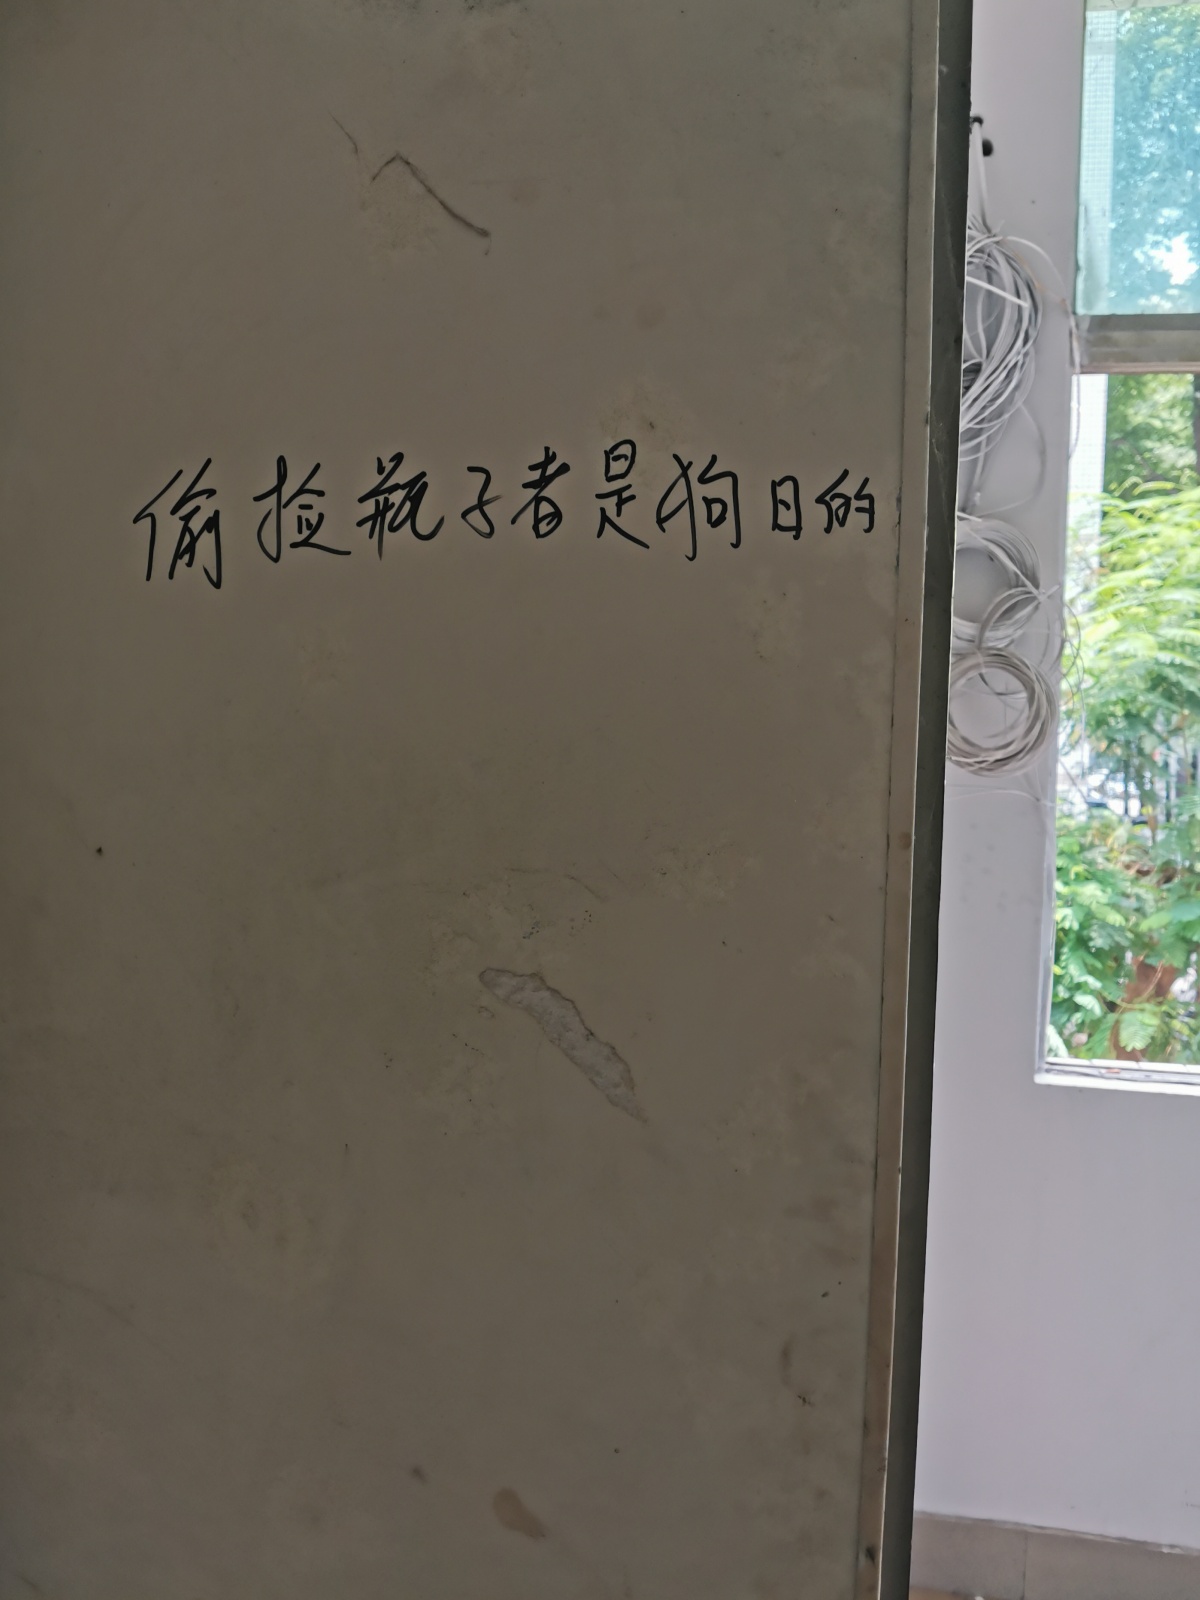 偷捡瓶子者是狗日的